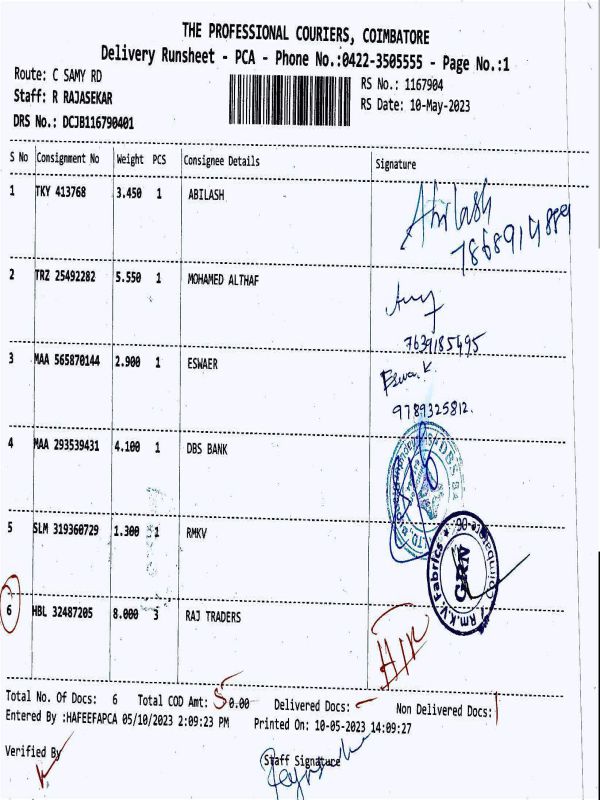 THE PROFESSIONAL COURIERS, COIMBATORE
Delivery Runsheet - PCA - Phone No.:0422-3505555 - Page No.:1
Route: C SAMY RD
RS No.: 1167904
Staff: R RAJASEKAR
RS Date: 10-May-2023
DRS No.: DCJB116790401
S No Consignment No Weight PCS Consignee Details Signature
1 TKY 413768 3.450 1 ABILASH Abilash
2 TRZ 25492282 5.550 1 MOHAMED ALTHAF
7639185495
3 MAA 565870144 2.900 1 ESWAER Eswar.K
9789325812.
4 MAA 293539431 4.100 1 DBS BANK
5 SLM 319360729 1.300 1 RMKV
Rm.K.V. Fabrics * Coimbatore-06 *
GRN
6 HBL 32487205 8.000 3 RAJ TRADERS
Total No. Of Docs: 6 Total COD Amt: 0.00 Delivered Docs: 5 Non Delivered Docs: 1
Entered By :HAFEEFAPCA 05/10/2023 2:09:23 PM Printed On: 10-05-2023 14:09:27
Verified By Staff Signature